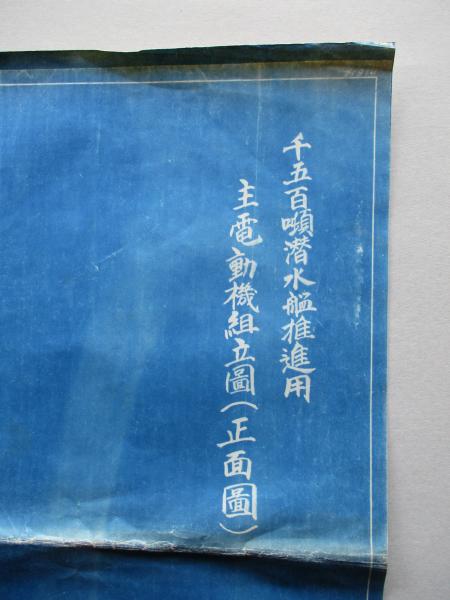 千五百噸潜水艦推進用
主電動機組立圖(正面圖)